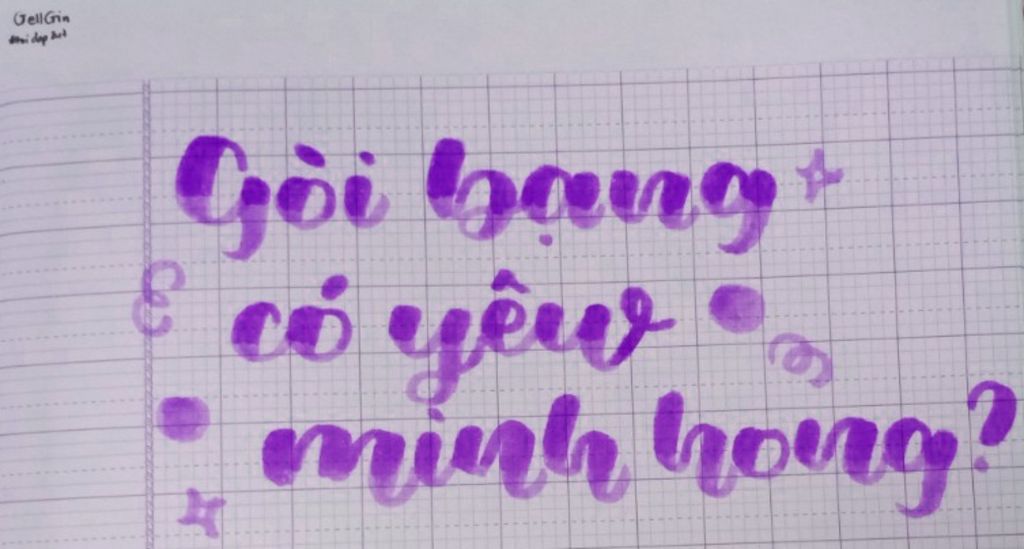 GellGin
Gòi bạng
có yêu
mình hong?